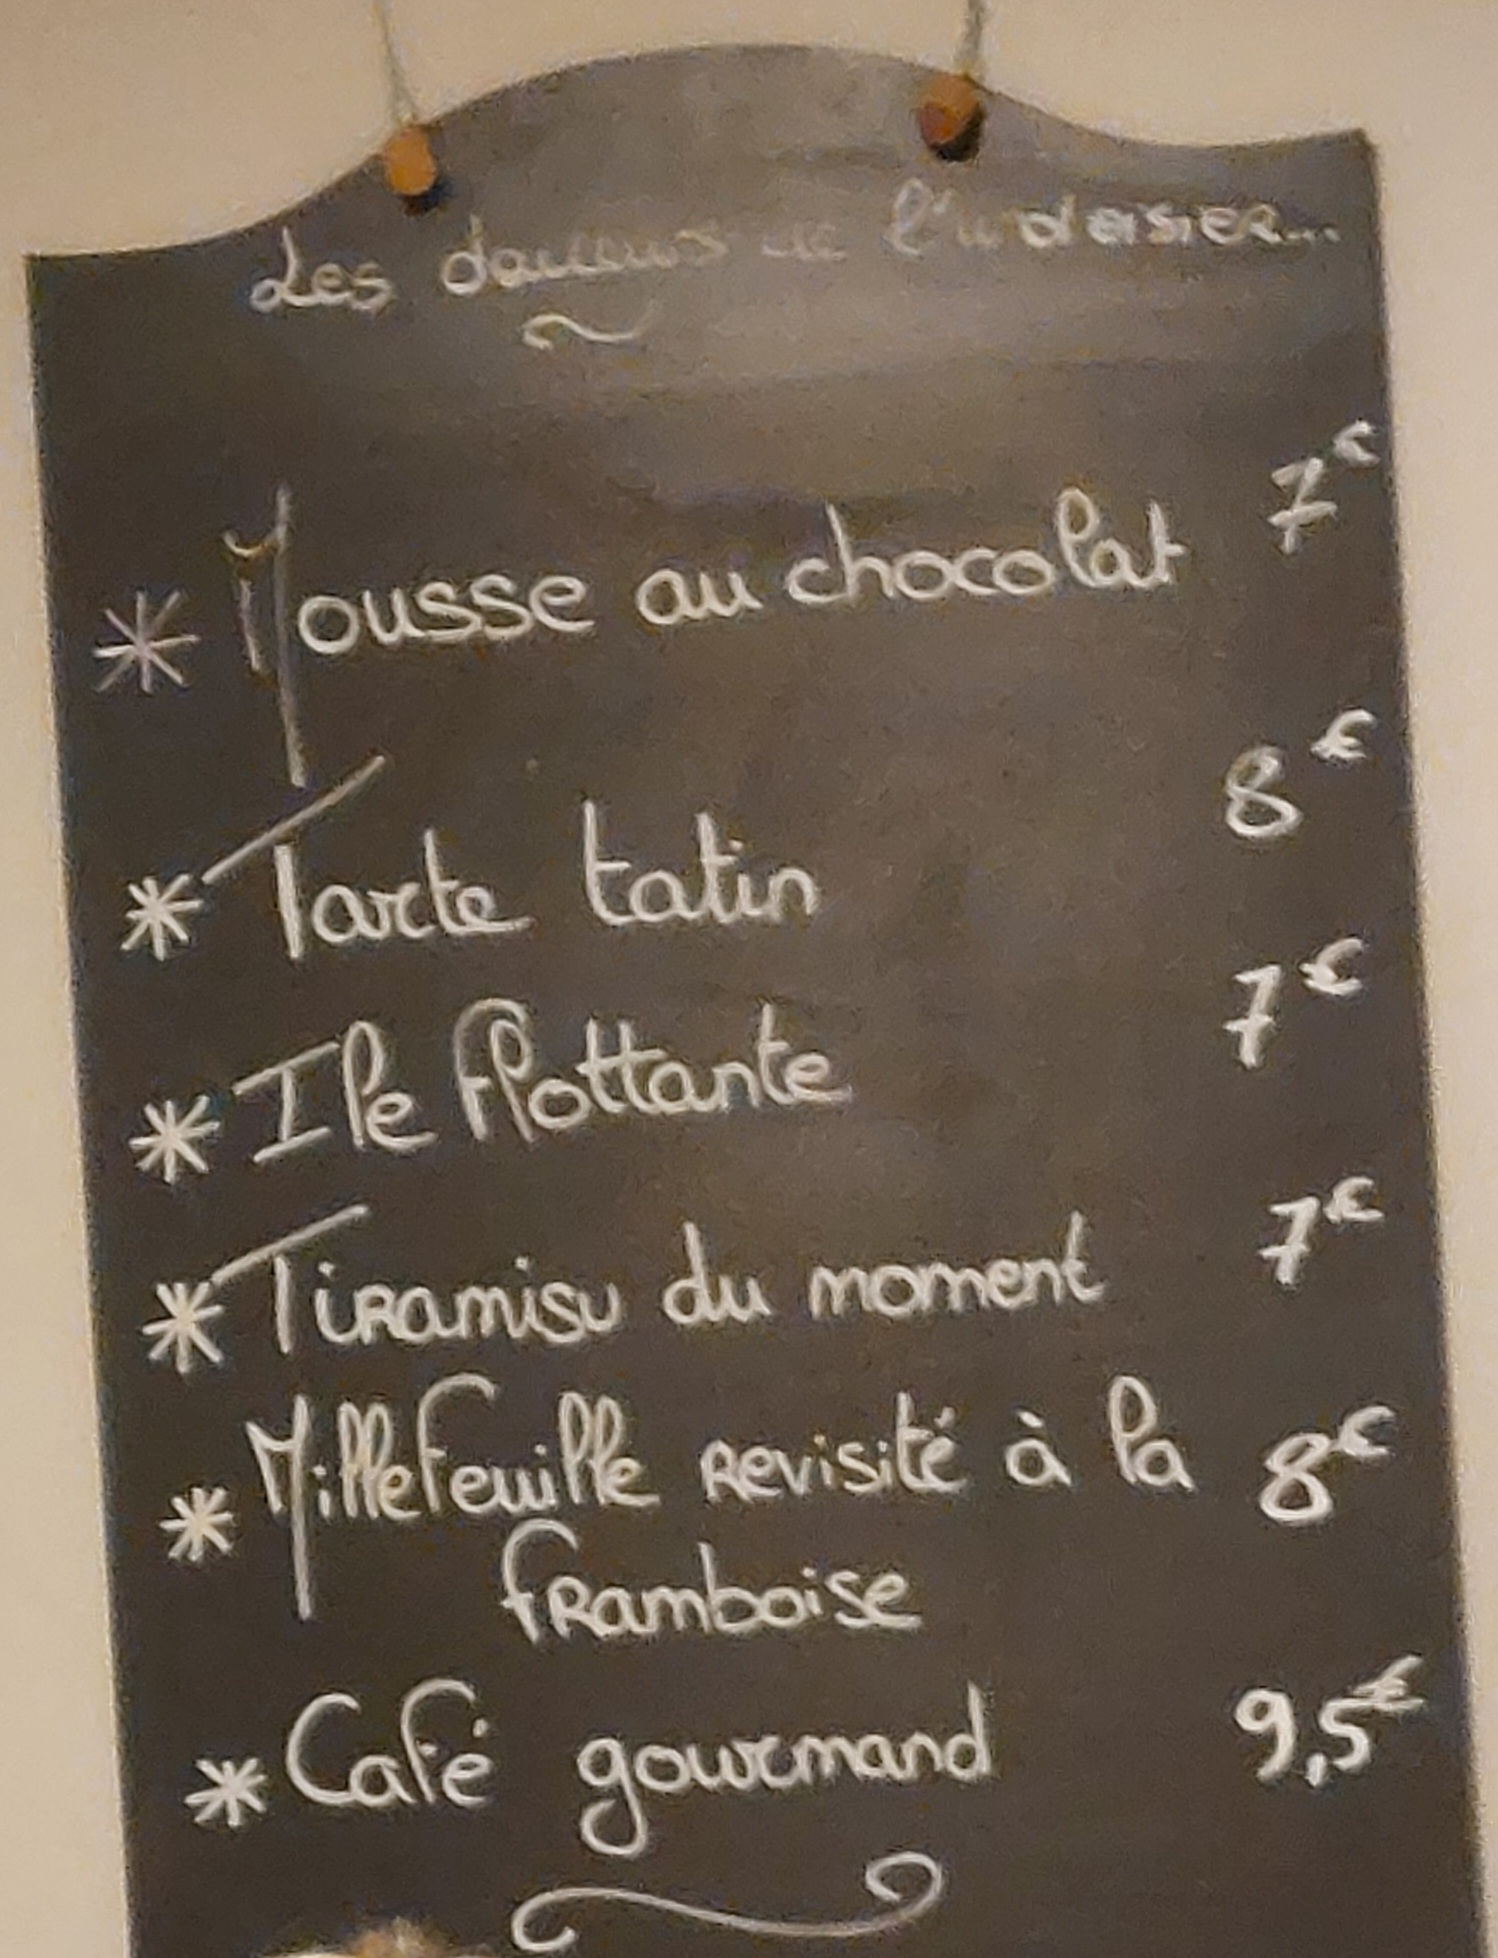 Les douceurs de l'ardoisier...
* Mousse au chocolat 7€
* Tarte tatin 8€
* Ile flottante 7€
* Tiramisu du moment 7€
* Millefeuille revisité à la 8€
framboise
* Café gourmand 9,5€